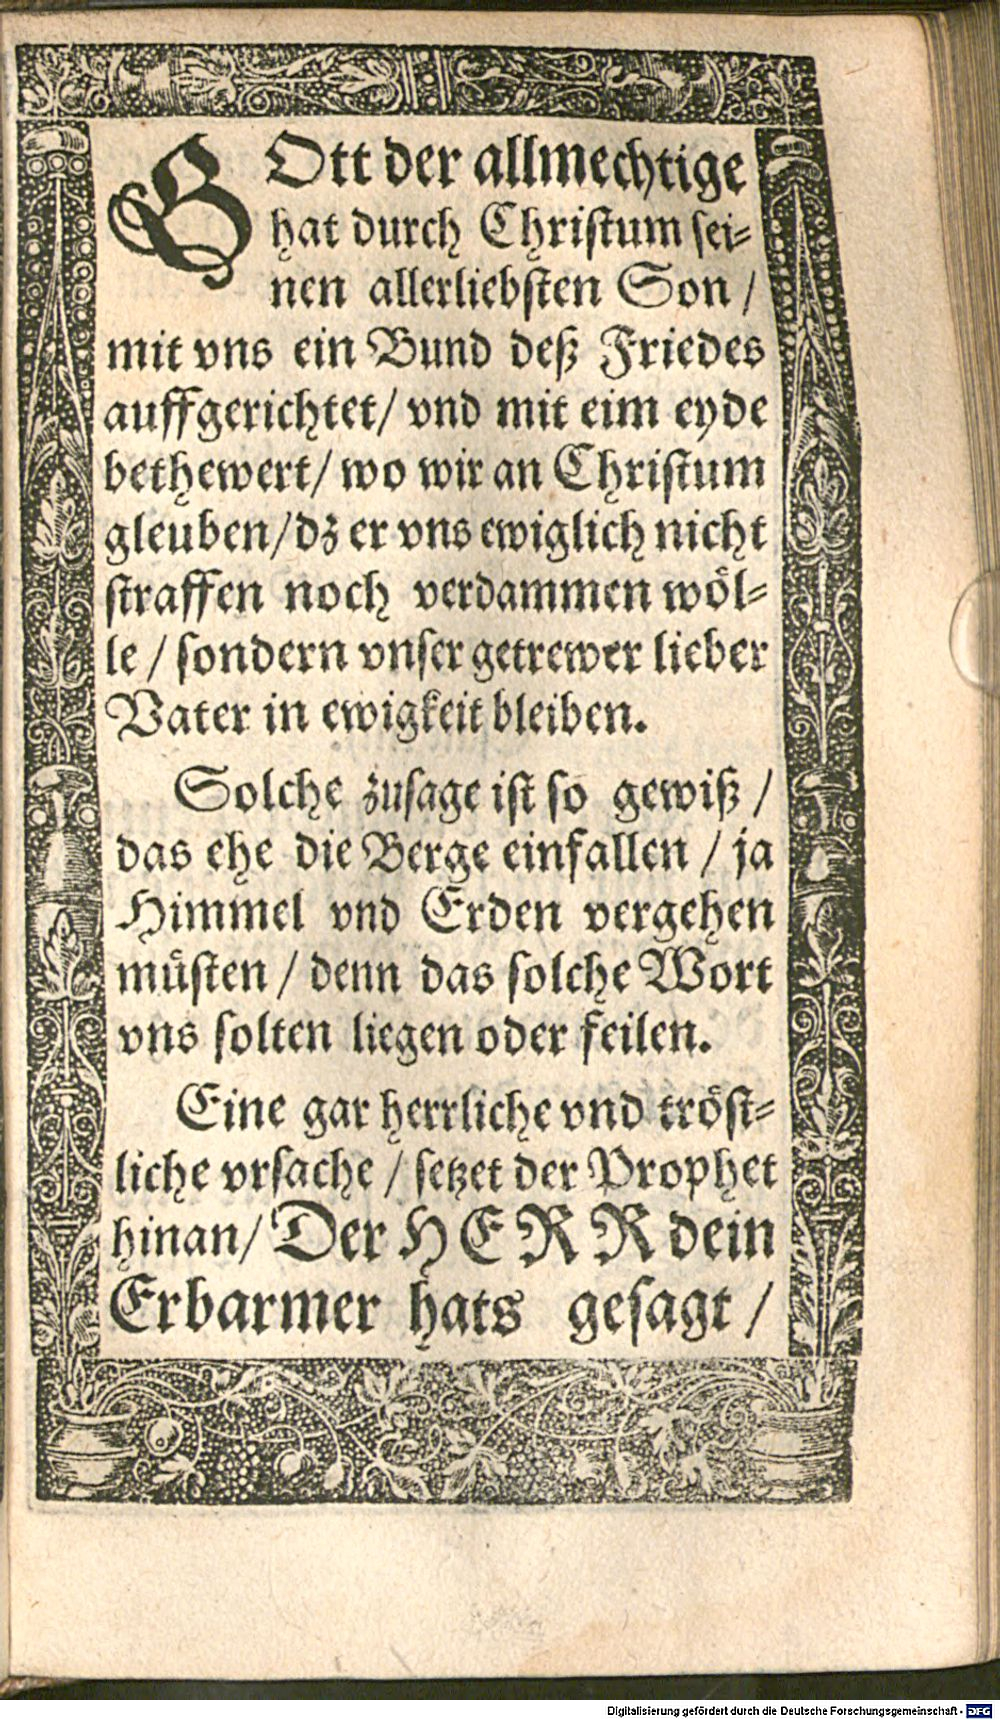 GOtt der allmechtige
hat durch Chriſtum ſei⸗
nen allerliebſten Son /
mit vns ein Bund deß Friedes
auffgerichtet / vnd mit eim eyde
bethewert / wo wir an Chriſtum
gleuben / dz er vns ewiglich nicht
ſtraffen noch verdammen wöl⸗
le / ſondern vnſer getrewer lieber
Vater in ewigkeit bleiben.
Solche zuſage iſt ſo gewiß /
das ehe die Berge einfallen / ja
Himmel vnd Erden vergehen
müſten / denn das ſolche Wort
vns ſolten liegen oder feilen.
Eine gar herrliche vnd tröſt⸗
liche vrſache / ſetzet der Prophet
hinan / Der HERR dein
Erbarmer hats geſagt /
Digitalisierung gefördert durch die Deutsche Forschungsgemeinschaft - DFG